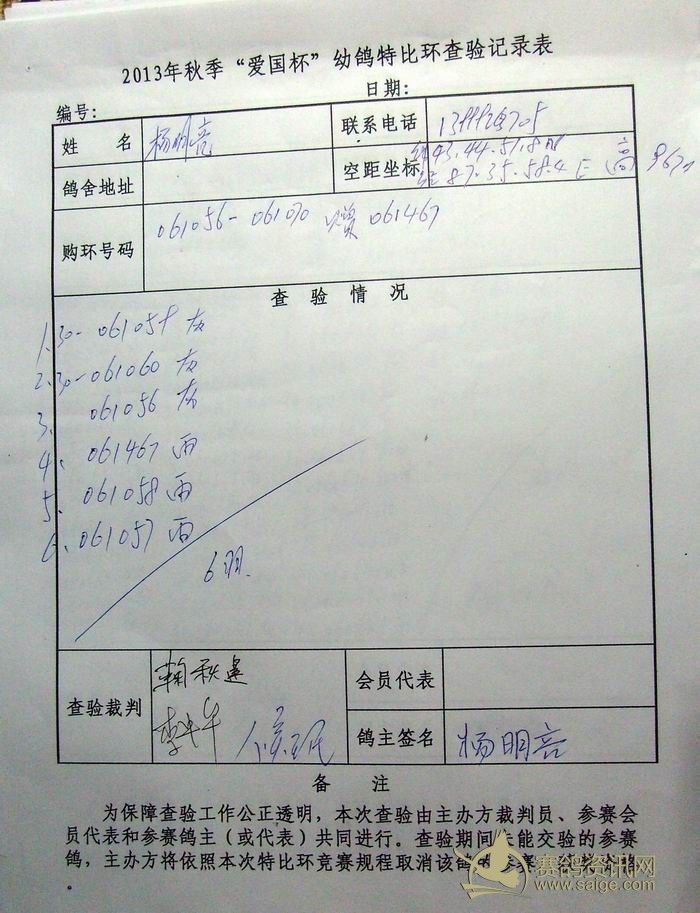 2013年秋季“爱国杯”幼鸽特比环查验记录表
编号： 日期：
姓 名 杨明亮 联系电话
鸽舍地址 空距坐标 纬43.44.51.8N
经87.35.58.4E 高967m
购环号码 061056-061070 赠061467
查 验 情 况
1.30-061059 灰
2.30-061060 灰
3. 061056 灰
4. 061467 雨
5. 061058 雨
6. 061057 雨
6羽.
查验裁判 会员代表
鸽主签名 杨明亮
备 注
为保障查验工作公正透明，本次查验由主办方裁判员、参赛会
员代表和参赛鸽主（或代表）共同进行。查验期间未能交验的参赛
鸽，主办方将依照本次特比环竞赛规程取消该鸽的参赛
。
赛鸽资讯网
www.saige.com